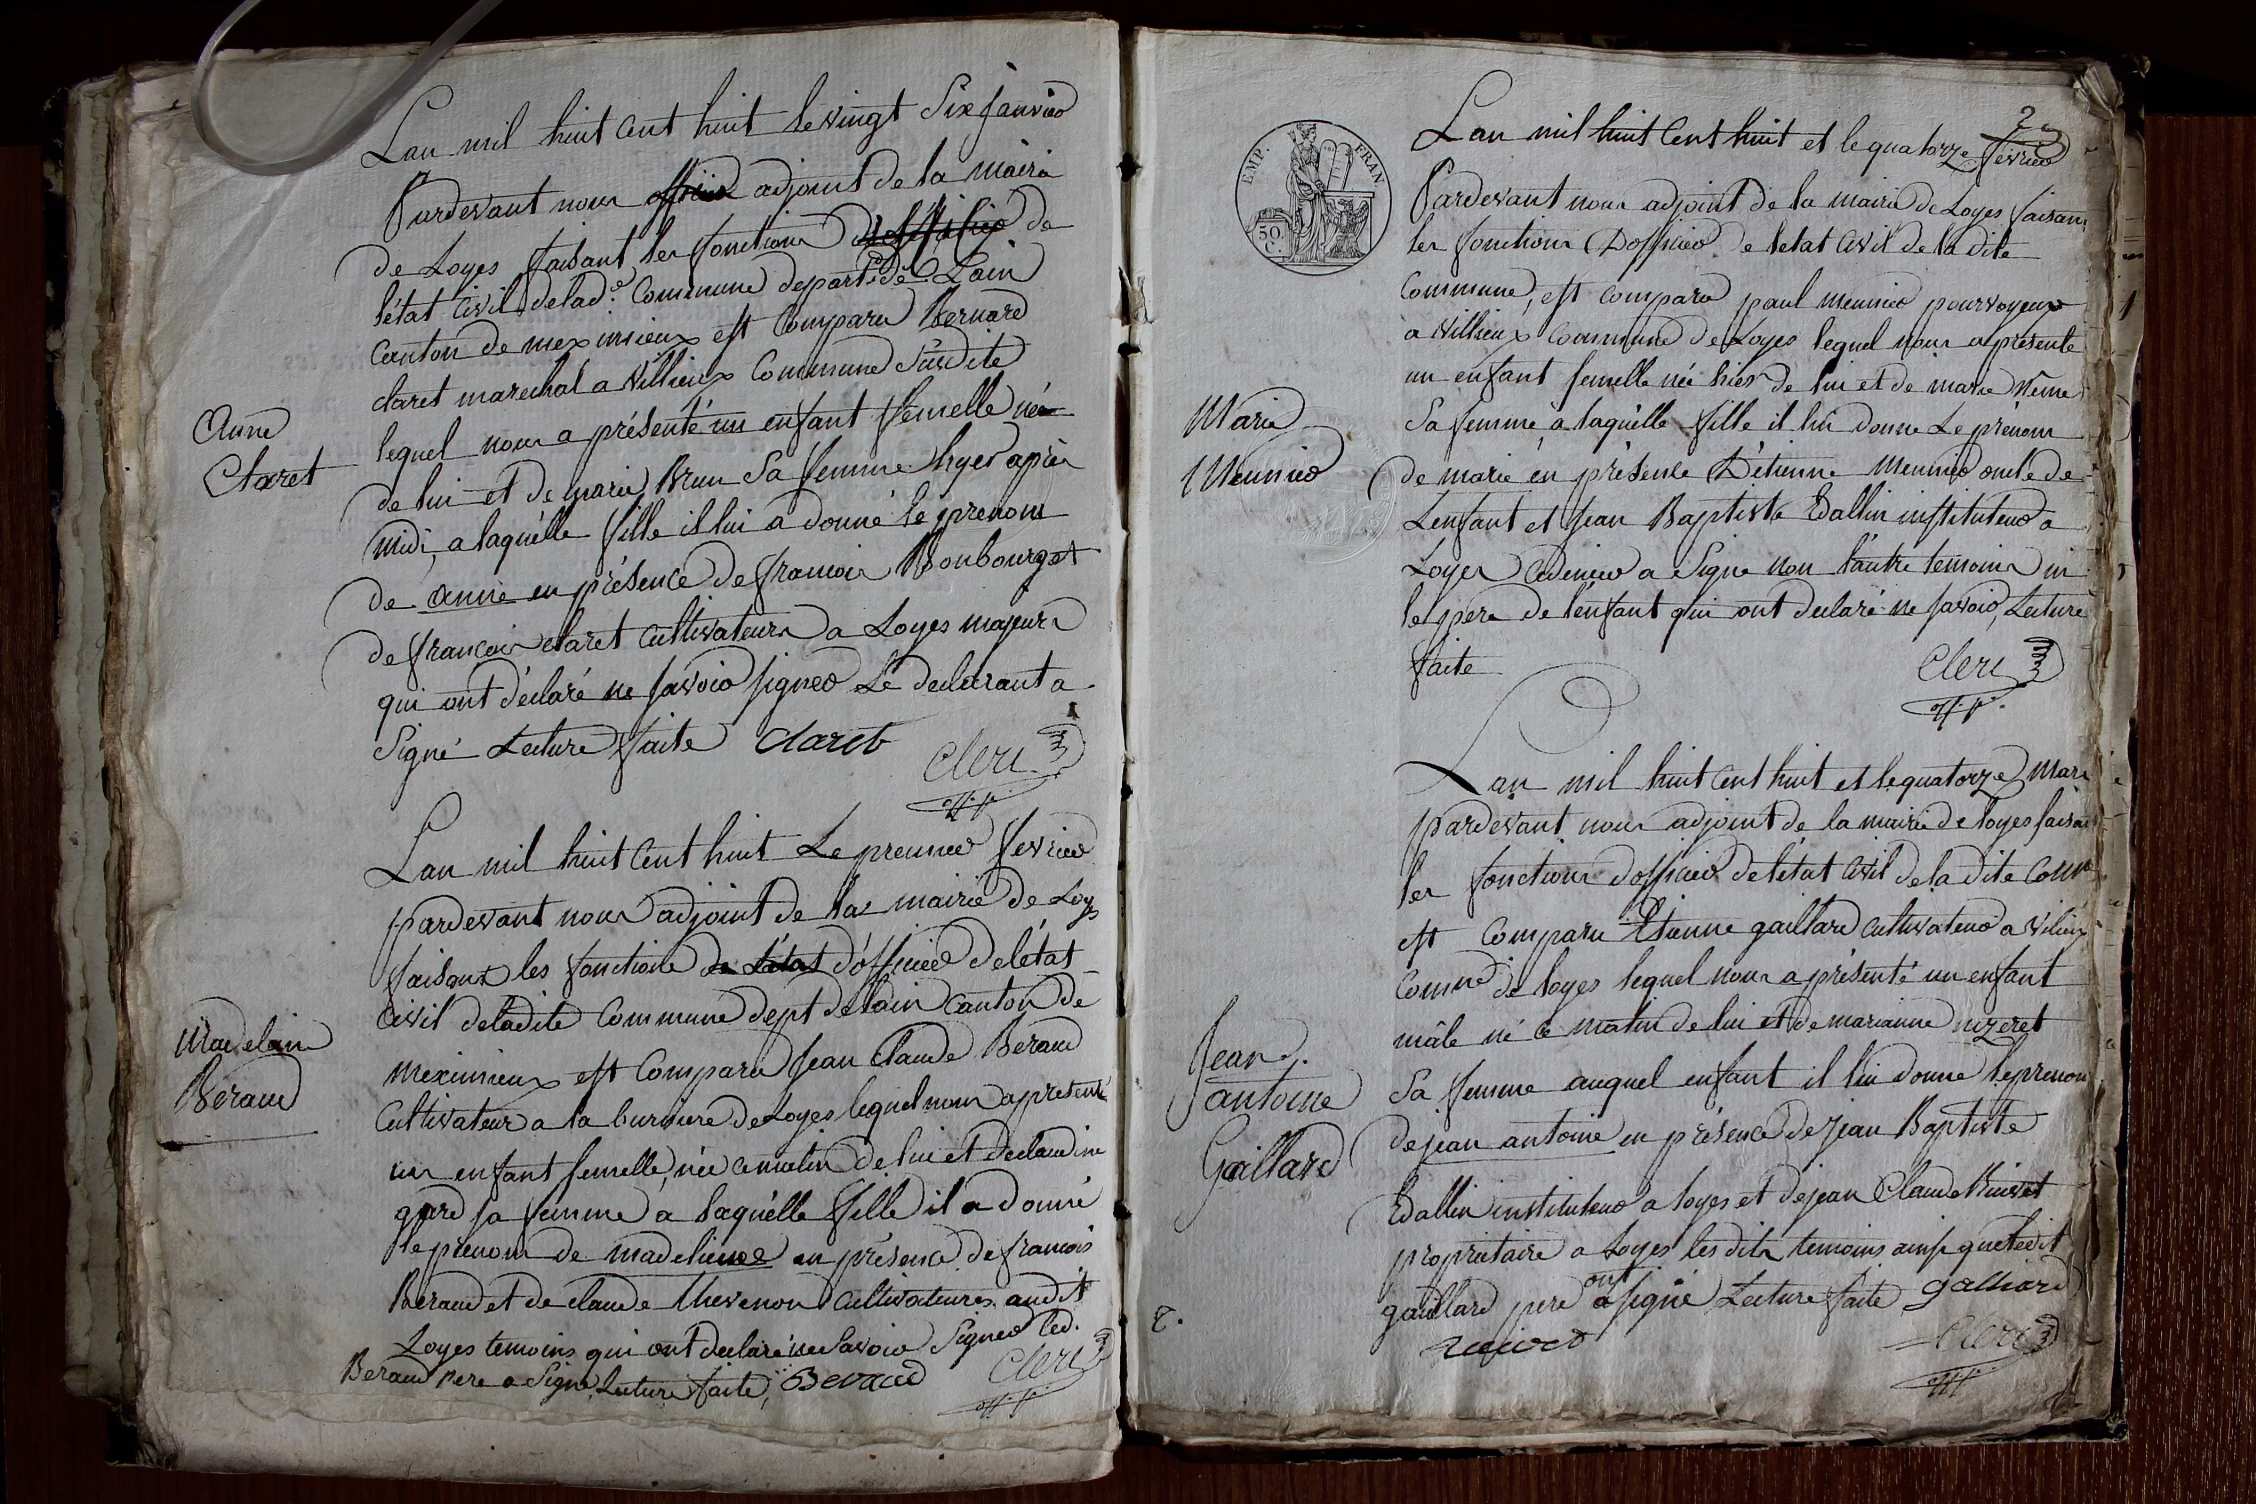 Lan mil huit Cent huit le vingt Six janvier
Pardevant nous adjoint de la mairie
de Loyes faisant les fonctions de
l'état Civil de lad.e Commune depart.t de Lain
Canton de meximieux est Comparu Bernard
claret marechal a Villieux Commune Susdite
lequel nous a présenté un enfant femelle née
de lui et de marie Brun Sa femme hyer après
midi, a laquelle fille il lui a donné le prenom
de anne en présence de francois Bonbourget
de francois claret Cultivateurs a Loyes majeurs
qui ont déclaré ne savoir signer Le declarant a
Signé Lecture faite Claret
Clerc
Anne
Claret
Lan mil huit Cent huit Le premier fevrier
pardevant nous adjoint de la mairie de Loyes
faisant les fonctions de L'état d'officier de l'état
Civil de ladite Commune dept de lain Canton de
meximieux est Comparu Jean Claude Beraud
Cultivateur a la burniere de Loyes lequel nous a présenté
un enfant femelle, née ce matin de lui et de claudine
gard sa femme a laquelle fille il a donné
le prenom de madeleine en présence de francois
Beraud et de claude thevenon Cultivateurs audit
Loyes temoins qui ont declaré ne Savoir Signer led.
Beraud pere a Signé, Lecture faite, Beraud
Clerc
Madelaine
Beraud
2
EMP. FRAN
50 C.
Lan mil huit Cent huit et le quatorze fevrier
Pardevant nous adjoint de la mairie de Loyes faisant
les fonctions D'officier de letat Civil de la dite
Commune, est comparu paul meunier pourvoyeur
a Villieux Commune de Loyes lequel nous a présenté
un enfant femelle née hier de lui et de marie
Sa femme, a laquelle fille il lui donne Le prénom
de marie en présence D'étienne Meunier oncle de
Lenfant et Jean Baptiste Edallin instituteur a
Loyes Ce dernier a Signé non l'autre temoin ni
le pere de l'enfant qui ont declaré ne savoir, Lecture
faite
Clerc
Marie
Meunier
Lan mil huit Cent huit et le quatorze Mars
pardevant nous adjoint de la mairie de loyes faisant
les fonctions d'officier de létat Civil de la dite Comne
est Comparu Etienne gaillard Cultivateur a Vilieux
Comne de loyes lequel nous a présenté un enfant
mâle né ce matin de lui et de marianne nizeret
Sa femme auquel enfant il lui donne le prenom
de jean antoine en présence de Jean Baptiste
Edallin instituteur a loyes et de jean Claude
propriétaire a Loyes les dits temoins ainsi que ledit
gaillard pere ont signé Lecture faite galliard
Clerc
Jean
antoine
Gaillard